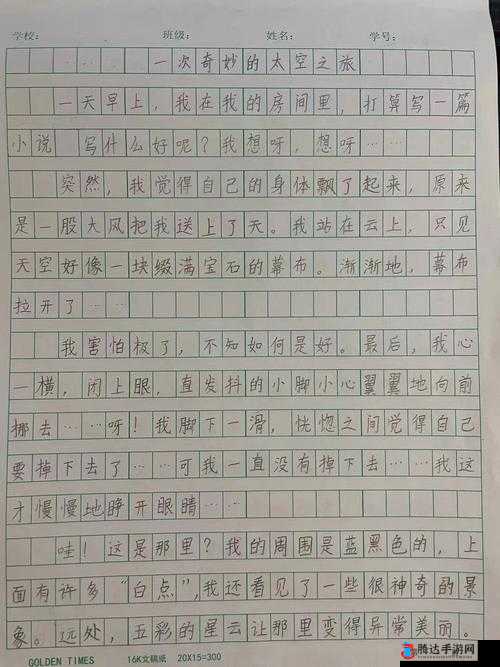 学校: 班级: 姓名: 学号:
一次奇妙的太空之旅
一天早上，我在我的房间里，打算写一篇
小说 写什么好呢？我想呀，想呀……
突然，我觉得自己的身体飘了起来，原来
是一股大风把我送上了天。我站在云上，只见
天空好像一块缀满宝石的幕布。渐渐地，幕布
拉开了……
我害怕极了，不知如何是好。最后，我心
一横，闭上眼，直发抖的小脚小心翼翼地向前
挪去……呀！我脚下一滑，恍惚之间觉得自己
要掉下去了……可我一直没有掉下去……我这
才慢慢地睁开眼睛……
哇！这是那里？我的周围是蓝黑色的，上
面有许多“白点”，我还看见了一些很神奇的景
象。远处，五彩的星云让那里变得异常美丽。
GOLDEN TIMES 16K文稿纸 20X15=300
腾达手游网